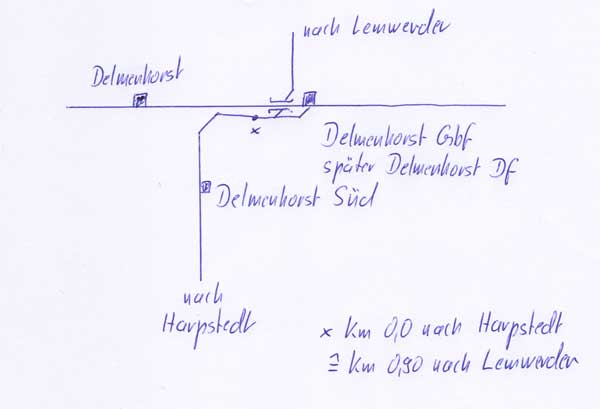 nach Lemwerder
Delmenhorst
Delmenhorst Gbf
später Delmenhorst Df
Delmenhorst Süd
nach
Harpstedt
x km 0,0 nach Harpstedt
≙ km 0,90 nach Lemwerder
x